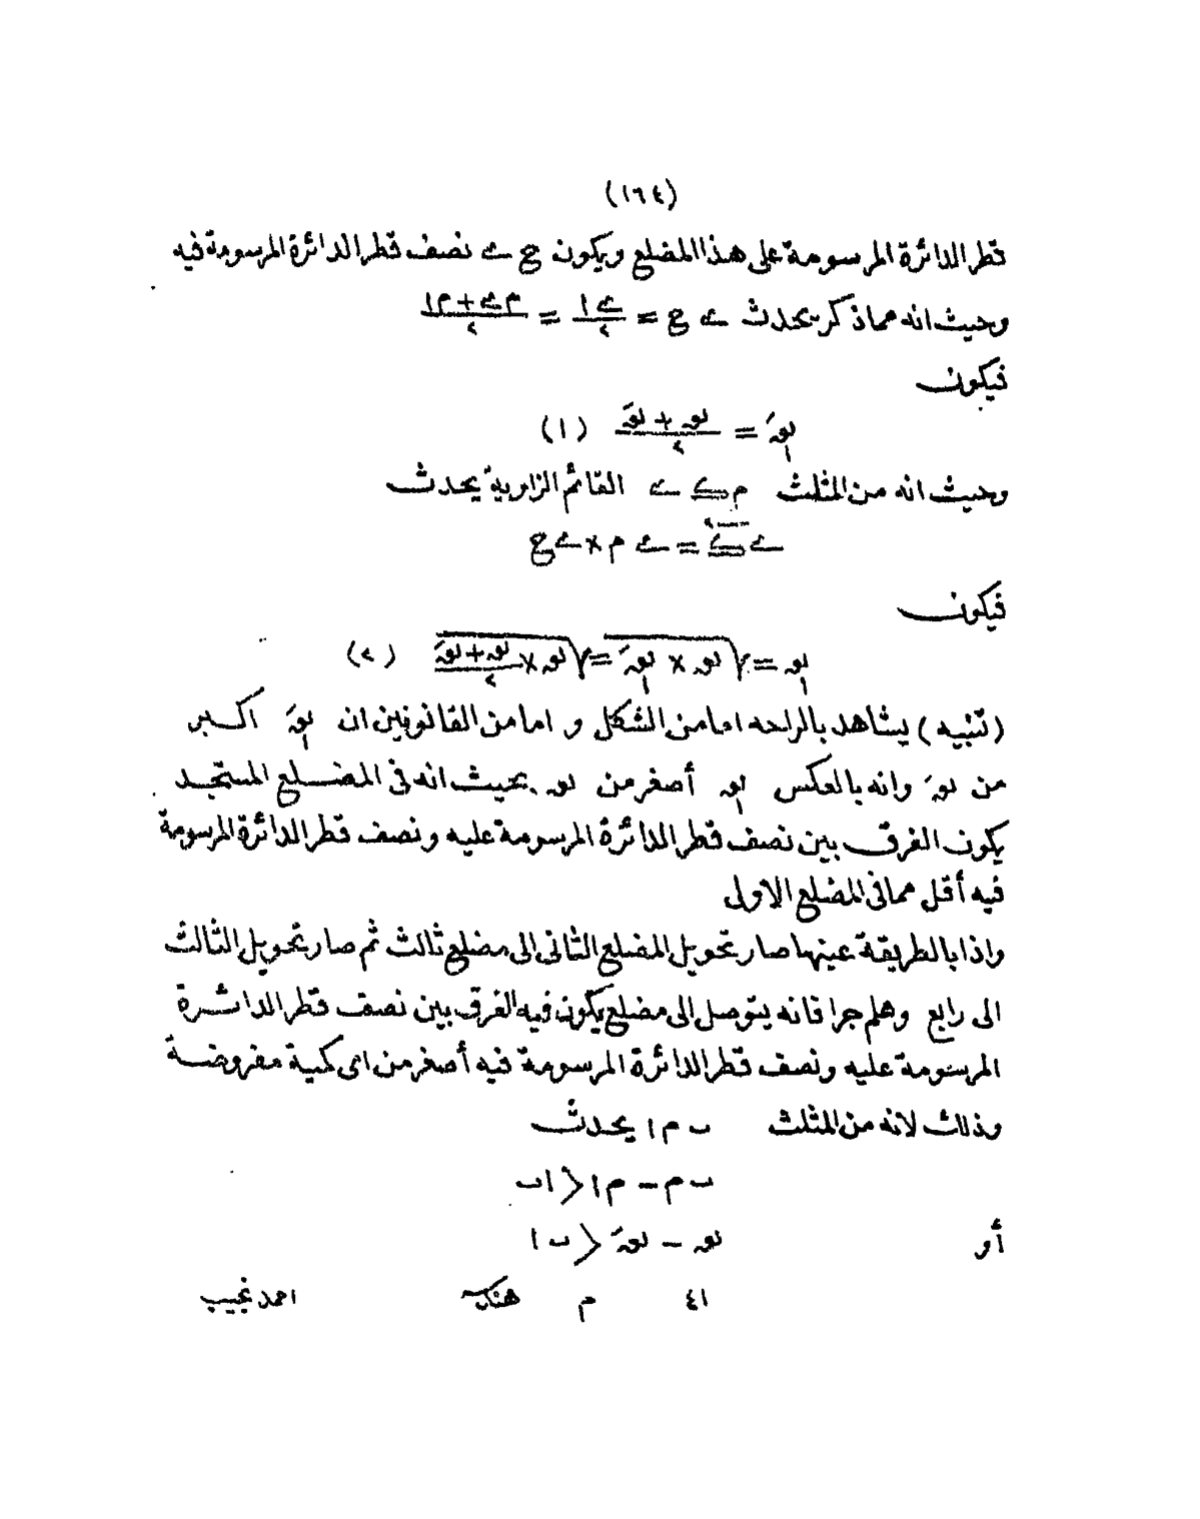 (١٦٤)
قطر الدائرة المرسومة على هذا المضلع ويكون ج ء نصف قطر الدائرة المرسومة فيه
وحيث انه مماذكر يحدث ء ج = ء ا / ٢ = م ء + م ا / ٢
فيكون
نقَ١ = نق + نقَ / ٢ (١)
وحيث انه من المثلث م ء القائم الزاوية يحدث
ء٢ = ء م × ء ج
فيكون
نق١ = √(نق × نقَ١) = √(نق × نق + نقَ / ٢) (٢)
(تنبيه) يشاهد بالراحه اما من الشكل و اما من القانونين ان نقَ١ اكبر
من نقَ وانه بالعكس نق١ أصغر من نق بحيث انه فى المضلع المستجد
يكون الفرق بين نصف قطر الدائرة المرسومة عليه ونصف قطر الدائرة المرسومة
فيه أقل مما فى المضلع الاولى
واذا بالطريقة عينها صار تحويل المضلع الثانى الى مضلع ثالث ثم صار تحويل الثالث
الى رابع وهلم جرا فانه يتوصل الى مضلع يكون فيه الفرق بين نصف قطر الدائرة
المرسومة عليه ونصف قطر الدائرة المرسومة فيه أصغر من اى كمية مفروضة
وذلك لانه من المثلث ب م ا يحدث
ب م − م ا < ا ب
أو نق − نقَ < ب ا
٤١ م هندسه احمد نجيب